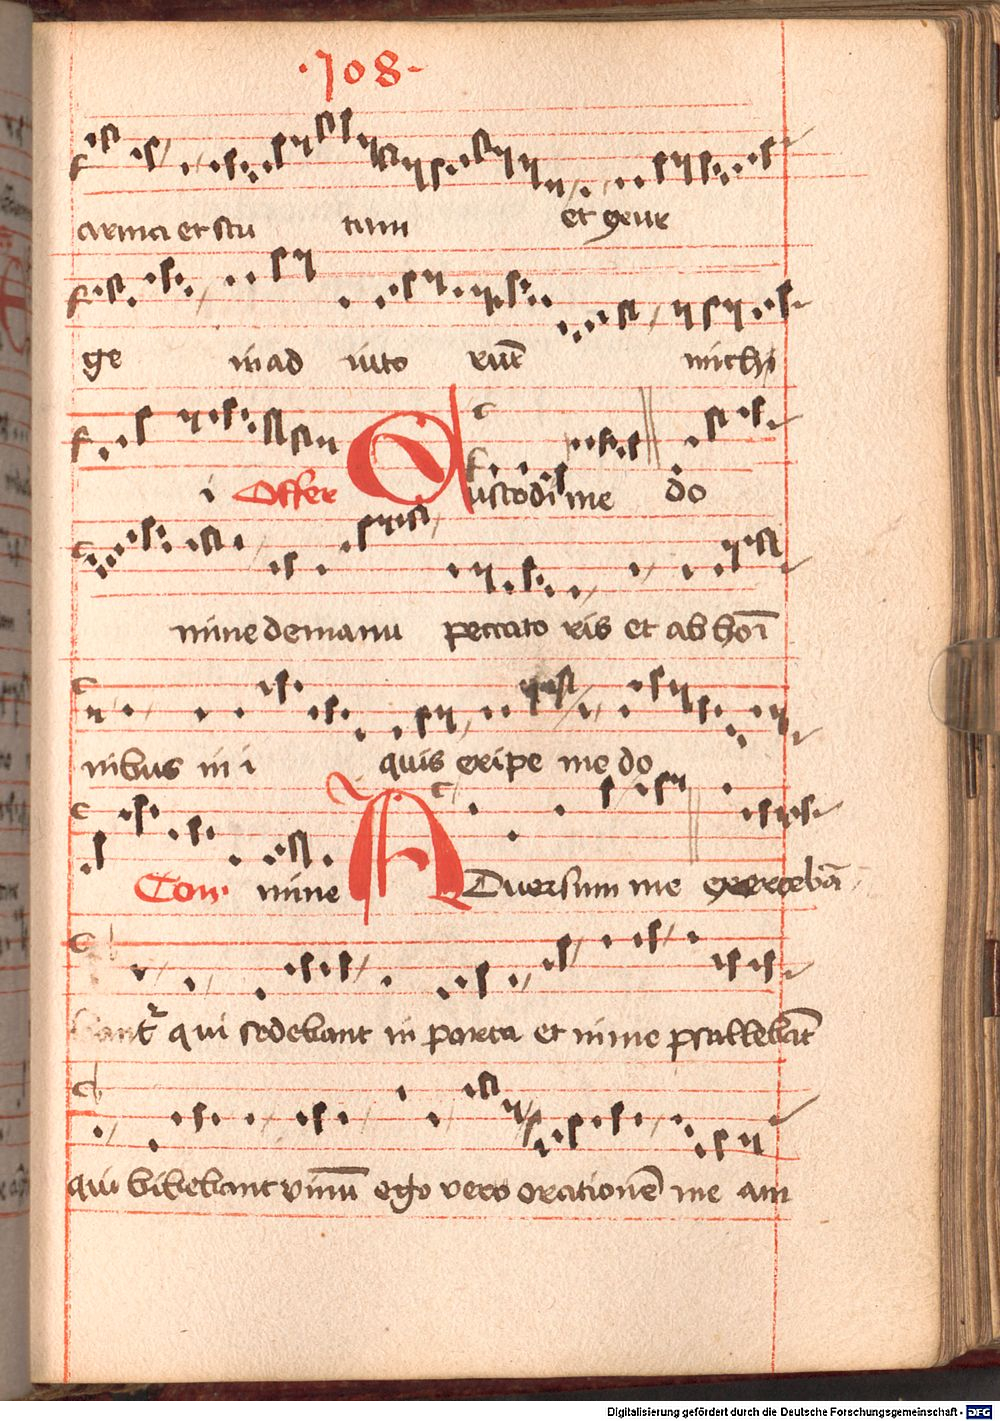 ·108·
arma et scu tum et exur
ge in ad iuto riū michi
i Offer Custodi me do
mine de manu peccato ris et ab hoī
nibus in i quis eripe me do
Com mine ADuersum me exercebā
bant qui sedebant in porta et in me psallebāt
qui bibebant vinū ego vero orationē me am
Digitalisierung gefördert durch die Deutsche Forschungsgemeinschaft - DFG